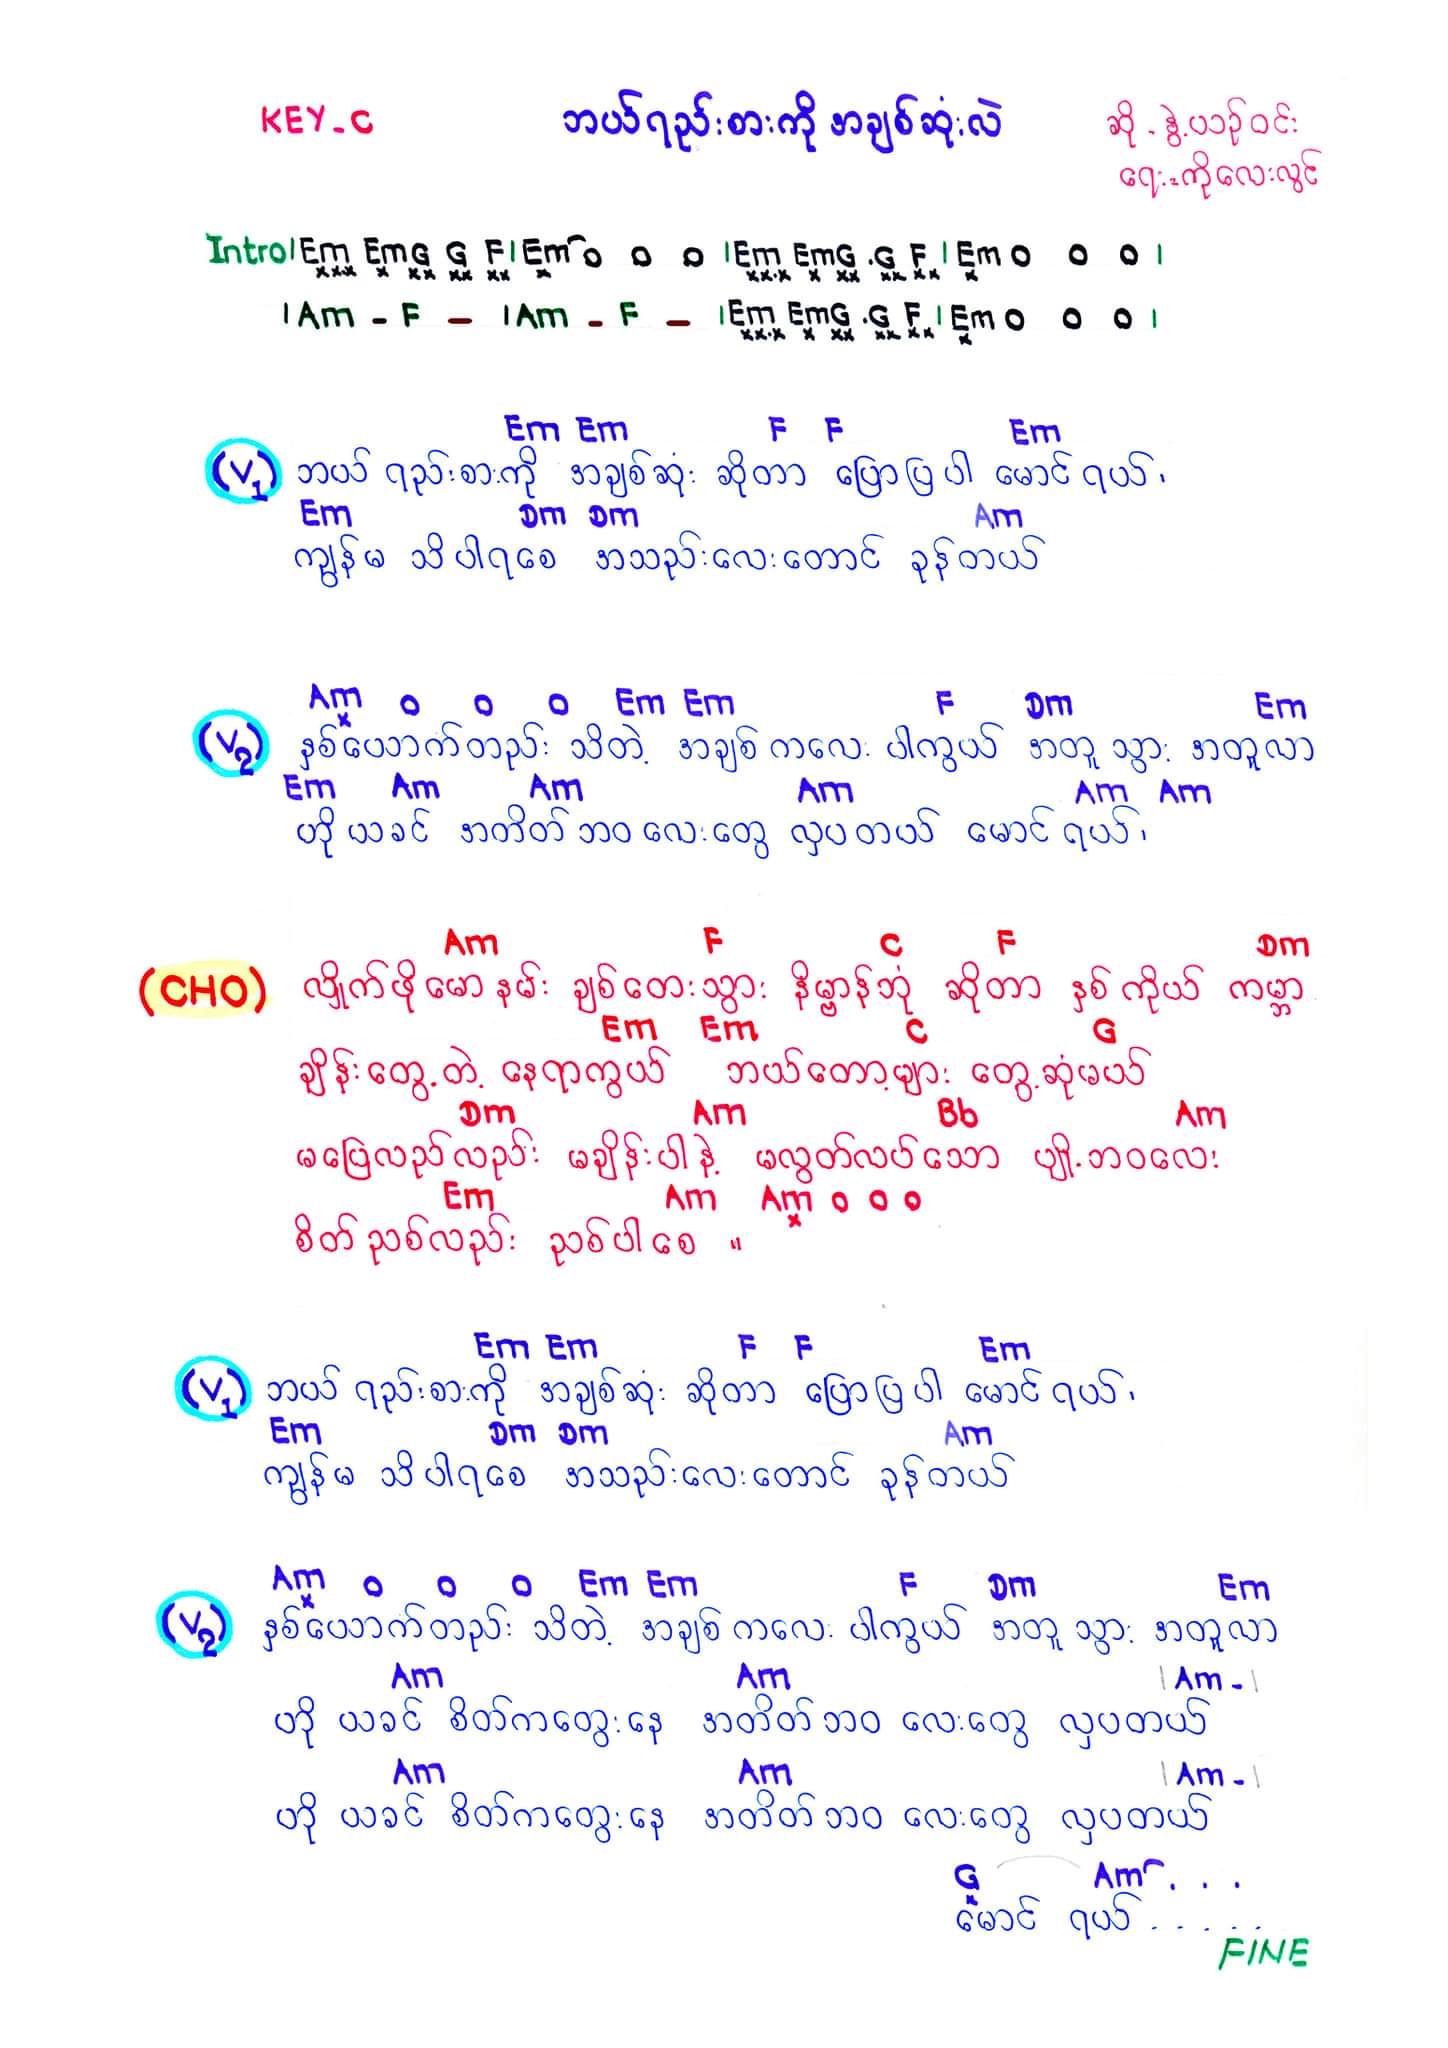 KEY - C
ဘယ်ရည်းစားကို အချစ်ဆုံးလဲ
ဆို - နွဲ့ယာဉ်ဝင်း
ရေး - ကိုလေးလွင်
Intro | Em Em G G F | Em o o o | Em Em G . G F | Em o o o |
| Am - F - | Am - F - | Em Em G . G F | Em o o o |
Em Em F F Em
(V1) ဘယ် ရည်းစားကို အချစ်ဆုံး ဆိုတာ ပြောပြပါ မောင်ရယ်၊
Em Dm Dm Am
ကျွန်မ သိပါရစေ အသည်းလေးတောင် ခုန်တယ်
Am o o o Em Em F Dm Em
(V2) နှစ်ယောက်တည်း သိတဲ့ အချစ်ကလေး ပါကွယ် အတူသွား အတူလာ
Em Am Am Am Am Am
ဟိုယခင် အတိတ်ဘဝလေးတွေ လှပတယ် မောင်ရယ်၊
Am F C F Dm
(CHO) လျှိုက်ဖိုမောနမ်း ချစ်တေးသွား နိဗ္ဗာန်ဘုံ ဆိုတာ နှစ်ကိုယ် ကမ္ဘာ
Em Em C G
ချိန်းတွေ့တဲ့ နေရာကွယ် ဘယ်တော့များ တွေ့ဆုံမယ်
Dm Am Bb Am
မပြေလည်လည်း မချိန်းပါနဲ့ မလွတ်လပ်သော ပျို့ဘဝလေး
Em Am Am o o o
စိတ်ညစ်လည်း ညစ်ပါစေ ။
Em Em F F Em
(V1) ဘယ် ရည်းစားကို အချစ်ဆုံး ဆိုတာ ပြောပြပါ မောင်ရယ်၊
Em Dm Dm Am
ကျွန်မ သိပါရစေ အသည်းလေးတောင် ခုန်တယ်
Am o o o Em Em F Dm Em
(V2) နှစ်ယောက်တည်း သိတဲ့ အချစ်ကလေး ပါကွယ် အတူသွား အတူလာ
Am Am | Am - |
ဟို ယခင် စိတ်ကတွေးနေ အတိတ်ဘဝ လေးတွေ လှပတယ်
Am Am | Am - |
ဟို ယခင် စိတ်ကတွေးနေ အတိတ်ဘဝ လေးတွေ လှပတယ်
G Am . . .
မောင် ရယ် . . . . .
FINE